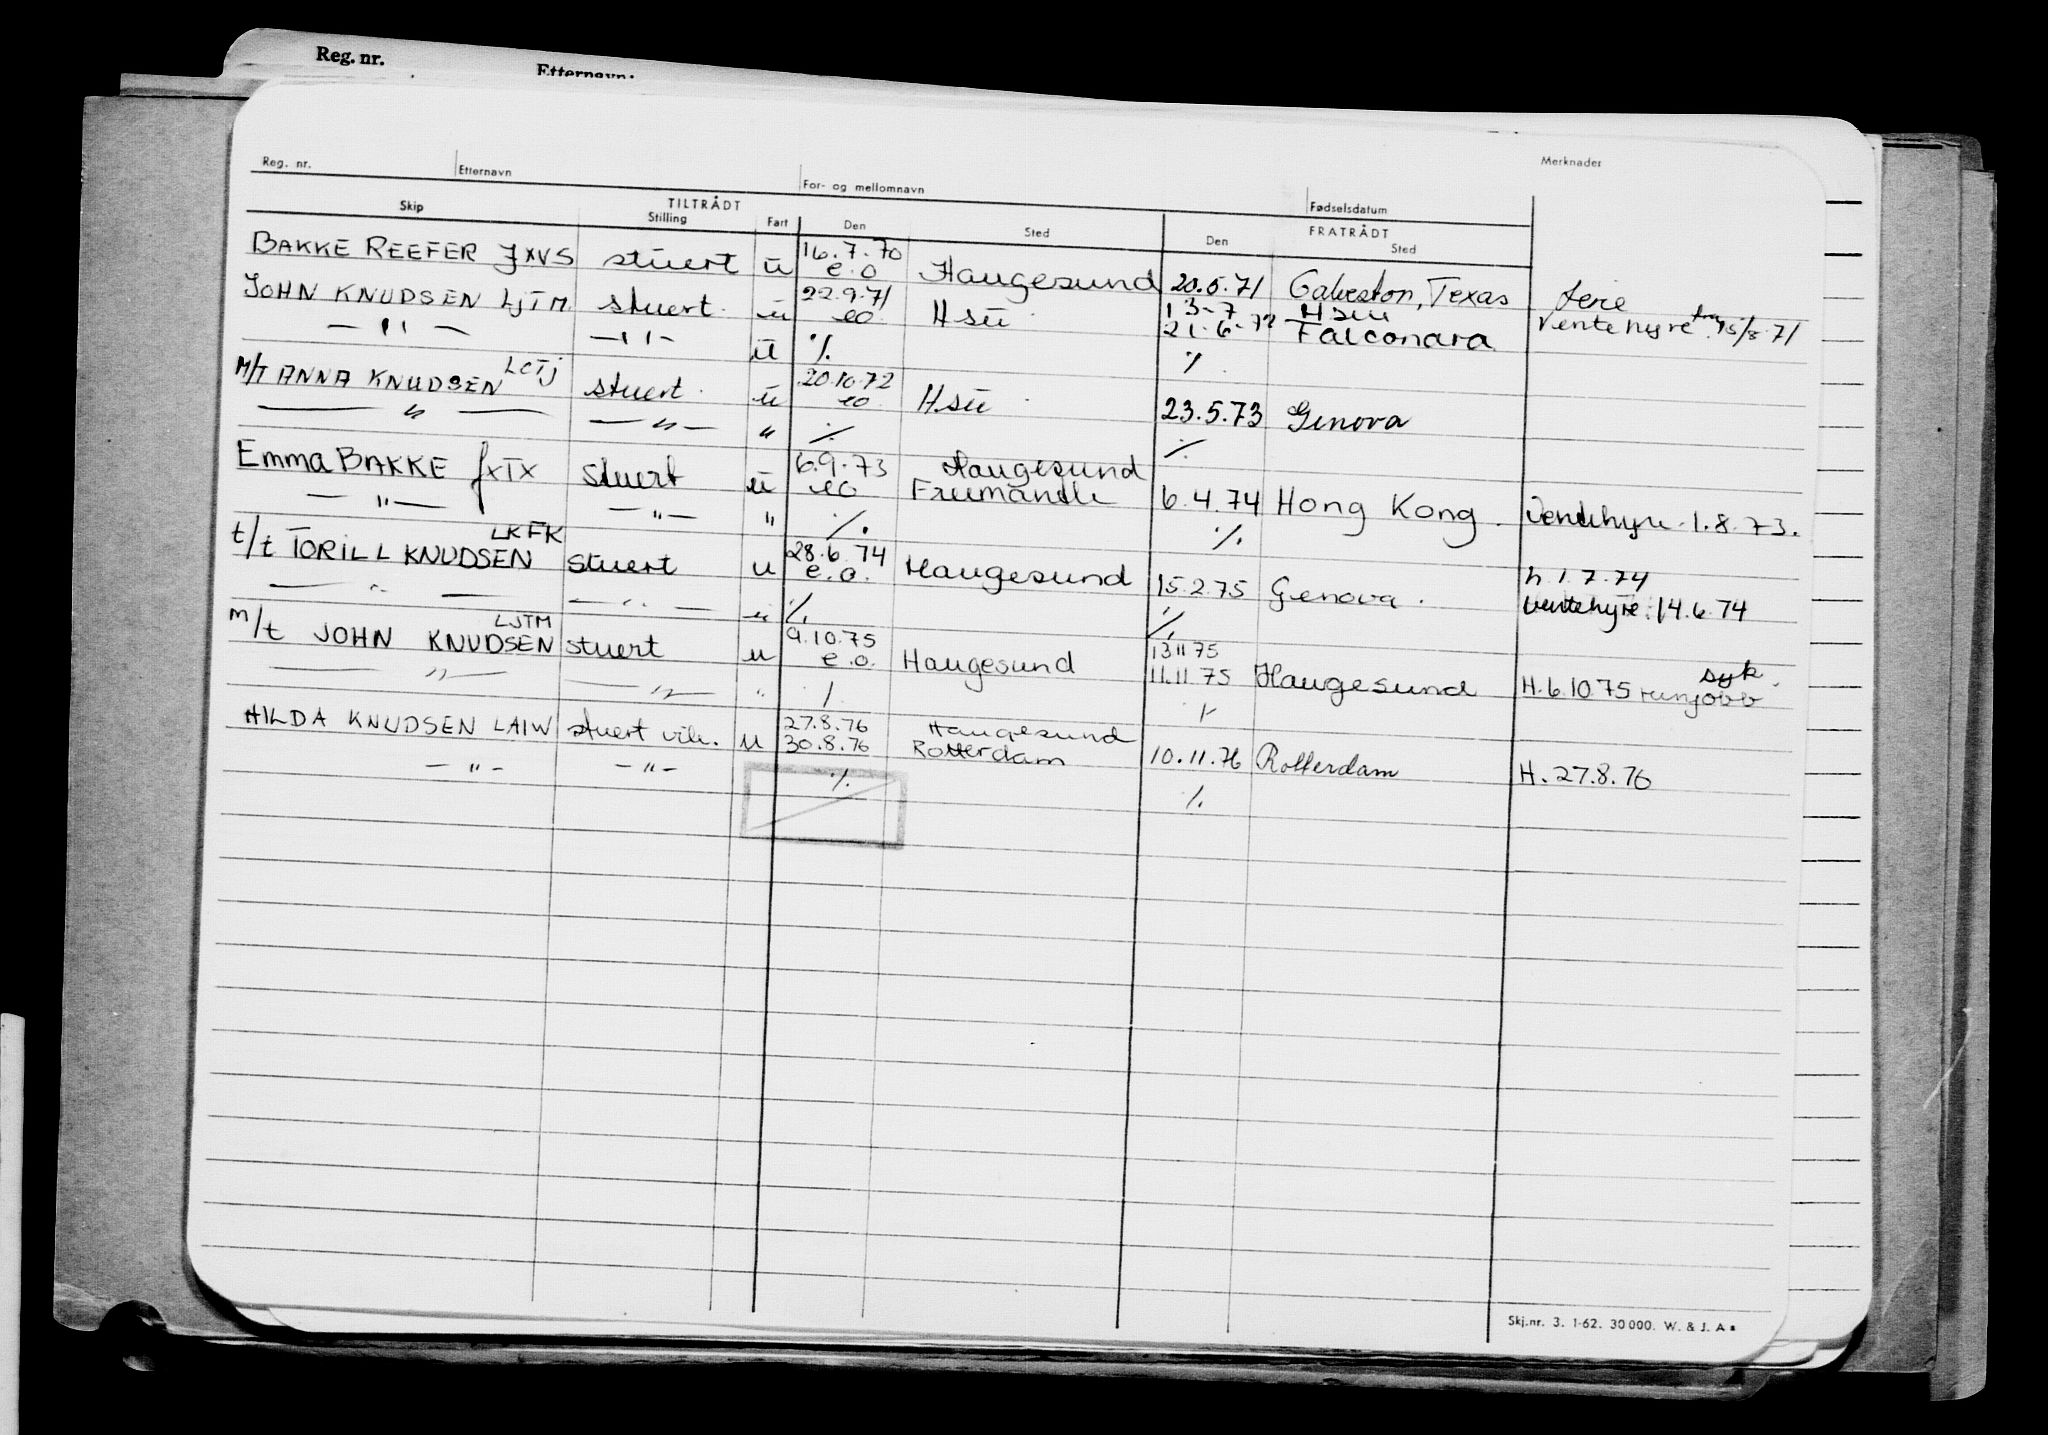 Reg. nr.
Etternavn:
Reg. nr. Etternavn For- og mellomnavn Fødselsdatum Merknader
TILTRÅDT FRATRÅDT
Skip Stilling Fart Den Sted Den Sted
BAKKE REEFER JXVS stuert u 16.7.70 e.o Haugesund 20.5.71 Galveston, Texas ferie
JOHN KNUDSEN LJTM stuert u 22.9.71 eo Hsu 13-7 Hsu 21-6-72 Falconara Ventehyre fra 15/8.71
— " — — " — u % %
M/T ANNA KNUDSEN LCTJ stuert u 20.10.72 eo Hsu 23.5.73 Genova
— " — — " — " % %
Emma BAKKE JXTX Stuert u 6.9.73 eo Haugesund Fremantle 6.4.74 Hong Kong Ventehyre 1.8.73.
— " — — " — " % %
t/t TORILL KNUDSEN LKFK stuert u 28.6.74 e.o. Haugesund 15.2.75 Genova h. 1.7.74 ventehyre 14.6.74
— " — — " — u % %
m/t JOHN KNUDSEN LJTM stuert u 9.10.75 e.o. Haugesund 13 11 75 11.11.75 Haugesund H. 6.10.75 syk
— " — — " — "
HILDA KNUDSEN LAIW stuert vik. u 27.8.76 30.8.76 Haugesund Rotterdam 10.11.76 Rotterdam H. 27.8.76
— " — — " — % %
Skj.nr. 3. 1-62. 30 000. W. & J. A s